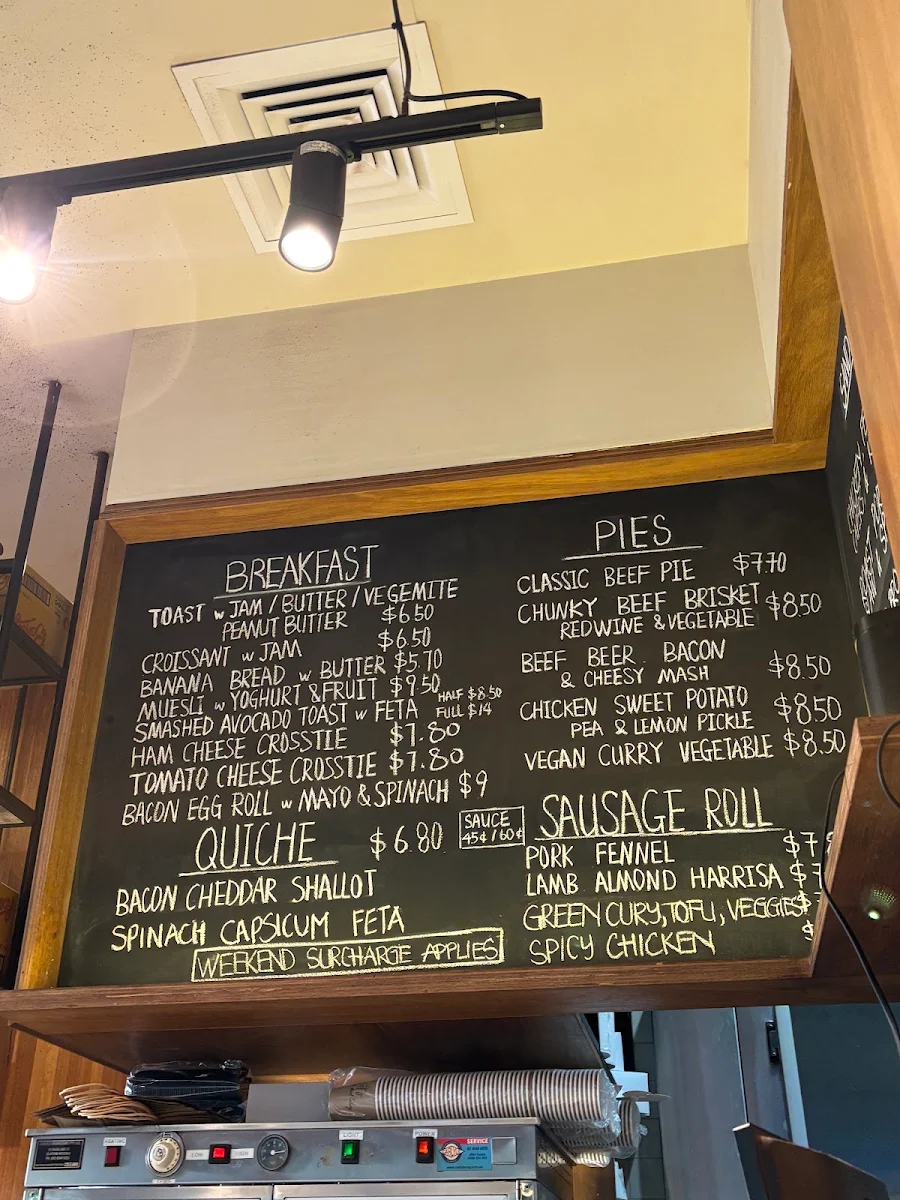 BREAKFAST
TOAST w JAM / BUTTER / VEGEMITE
PEANUT BUTTER $6.50
CROISSANT w JAM $6.50
BANANA BREAD w BUTTER $5.70
MUESLI w YOGHURT & FRUIT $9.50
SMASHED AVOCADO TOAST w FETA HALF $8.50
FULL $14
HAM CHEESE CROSSTIE $7.80
TOMATO CHEESE CROSSTIE $7.80
BACON EGG ROLL w MAYO & SPINACH $9
QUICHE $6.80
BACON CHEDDAR SHALLOT
SPINACH CAPSICUM FETA
WEEKEND SURCHARGE APPLIES
SAUCE
45¢ / 60¢
PIES
CLASSIC BEEF PIE $7.70
CHUNKY BEEF BRISKET $8.50
RED WINE & VEGETABLE
BEEF BEER BACON
& CHEESY MASH $8.50
CHICKEN SWEET POTATO $8.50
PEA & LEMON PICKLE
VEGAN CURRY VEGETABLE $8.50
SAUSAGE ROLL
PORK FENNEL
LAMB ALMOND HARRISA
GREEN CURY, TOFU, VEGGIES
SPICY CHICKEN
HEATING
LOW
HIGH
LIGHT
POWER
SERVICE